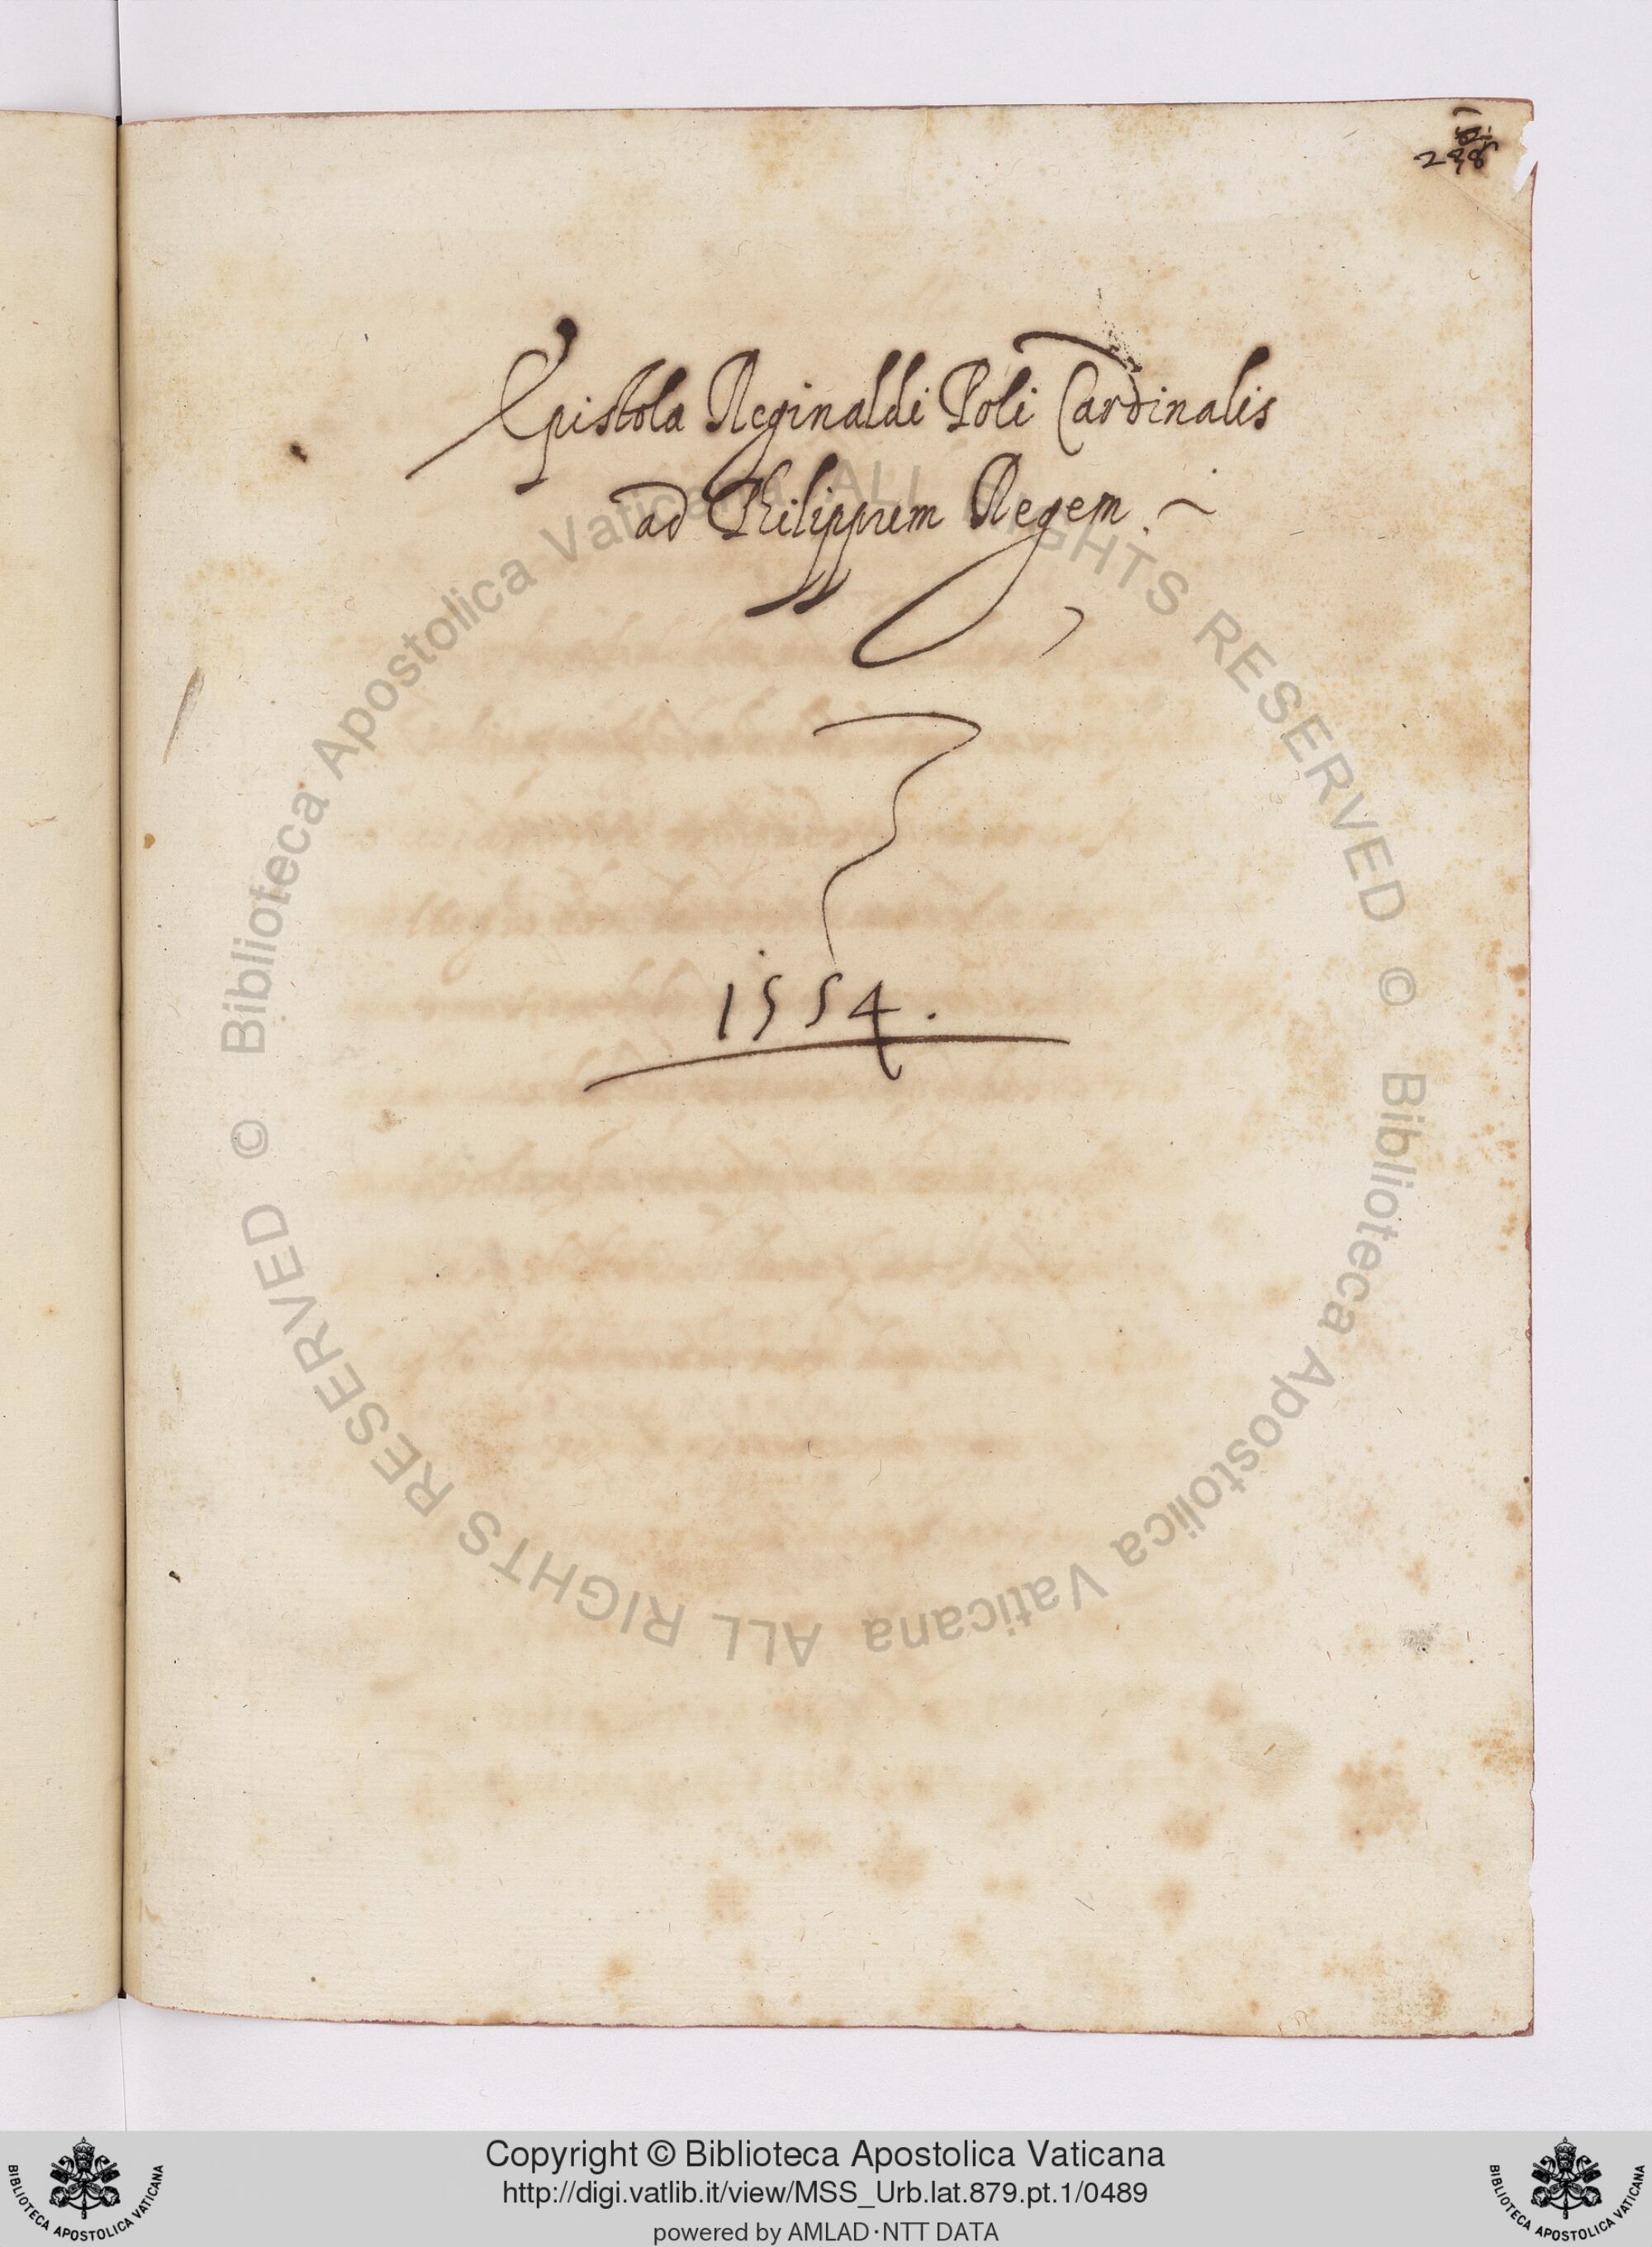 238
Epistola Reginaldi Poli Cardinalis
ad Philippum Regem
1554.
© Biblioteca Apostolica Vaticana ALL RIGHTS RESERVED © Biblioteca Apostolica Vaticana ALL RIGHTS RESERVED
Copyright © Biblioteca Apostolica Vaticana
http://digi.vatlib.it/view/MSS_Urb.lat.879.pt.1/0489
powered by AMLAD·NTT DATA
BIBLIOTECA APOSTOLICA VATICANA
BIBLIOTECA APOSTOLICA VATICANA